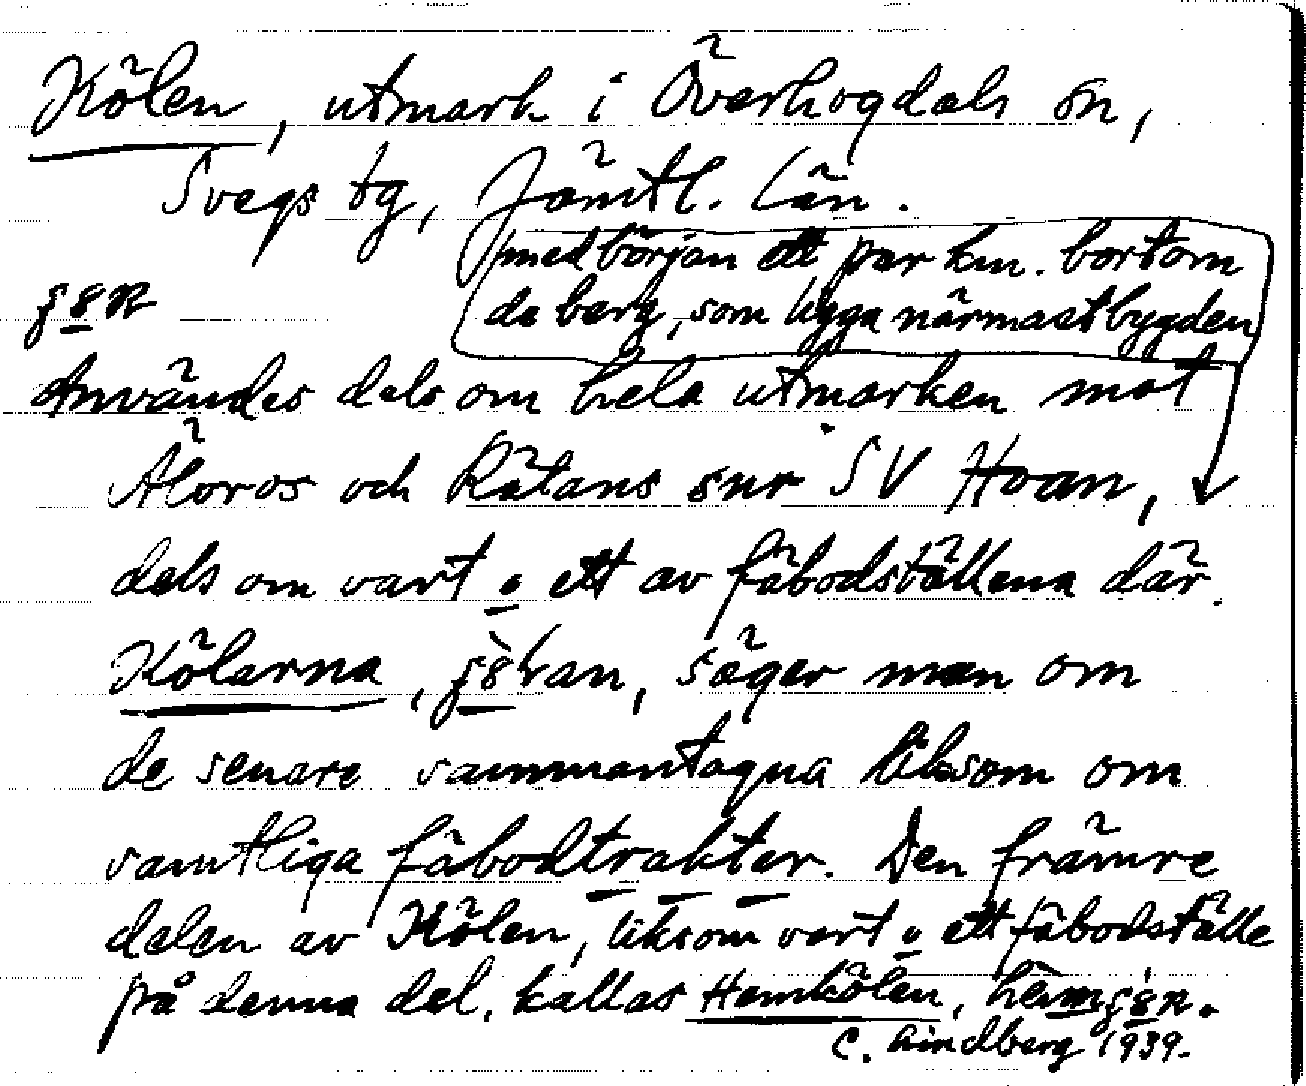 Kölen, utmark i Överhogdals sn,
Svegs tg, Jämtl. län.
med början ett par km. bortom
de berg, som ligga närmast bygden
Användes dels om hela utmarken mot
Åloros och Rätans snr SV Hoan,
dels om vart o ett av fäbodställena där.
Kölarna, säger man om
de senare sammantagna liksom om
samtliga fäbodtrakter. Den främre
delen av Kölen, liksom vart o ett fäbodställe
på denna del, kallas Hemkölen,
C. Lindberg 1939.